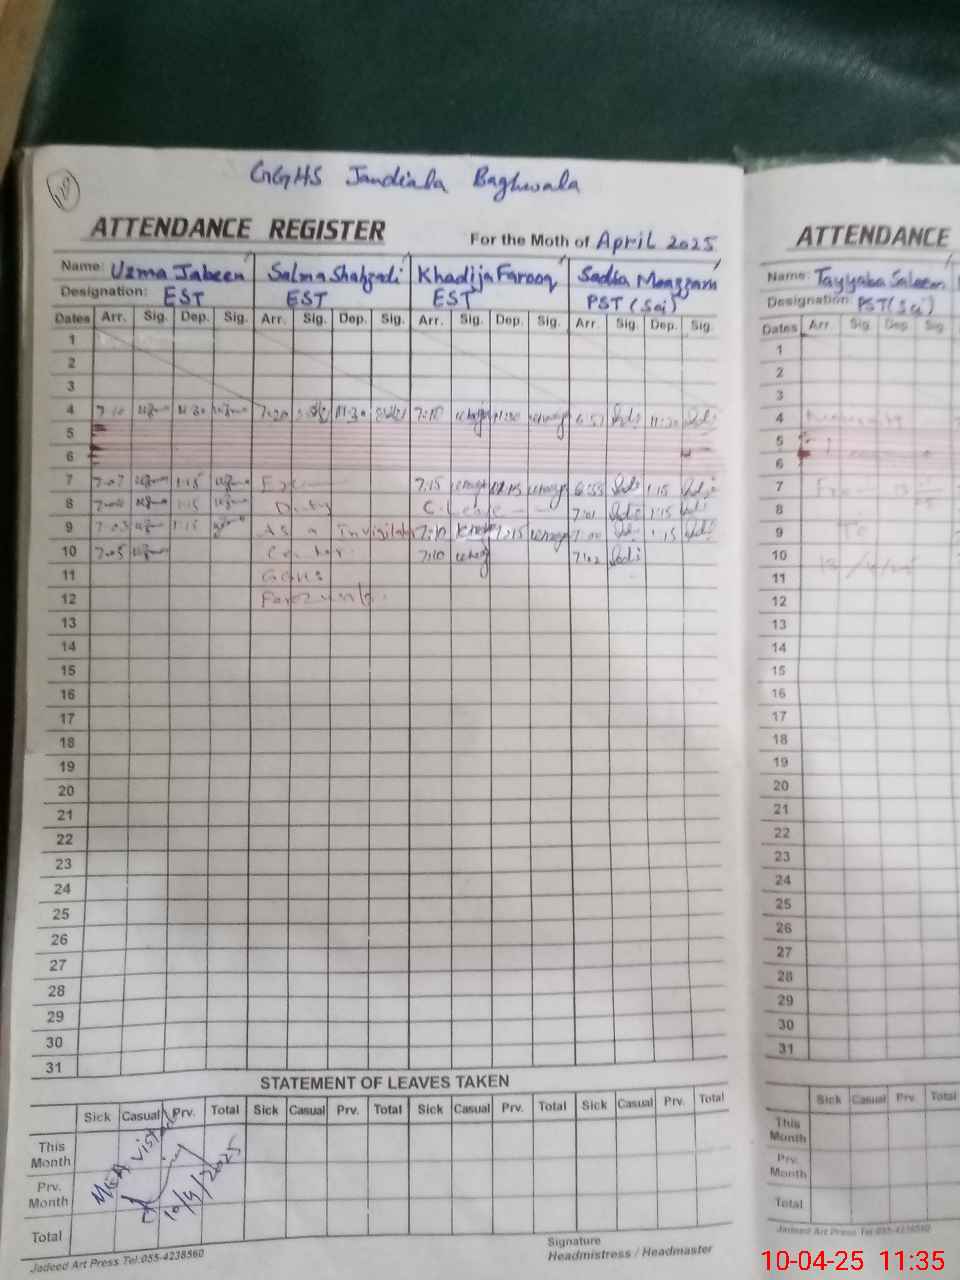 GGHS Jandiala Baghwala
ATTENDANCE REGISTER For the Moth of April 2025
Name: Uzma Jabeen Salma Shahzadi Khadija Farooq Sadia Moazzam
Designation: EST EST EST PST (Sci)
Dates Arr. Sig. Dep. Sig. Arr. Sig. Dep. Sig. Arr. Sig. Dep. Sig. Arr. Sig. Dep. Sig.
1
2
3
4 7:10 11:30 7:20 11:30 7:15 11:30 6:57 11:30
5
6
7 7:07 1:15 7:15 1:15 6:55 1:15
8 1:15 Duty 7:01 1:15
9 7:03 1:15 As a Invigilator 7:10 1:15 7:00 1:15
10 7:05 7:10 7:02
11
12
13
14
15
16
17
18
19
20
21
22
23
24
25
26
27
28
29
30
31
STATEMENT OF LEAVES TAKEN
Sick Casual Prv. Total Sick Casual Prv. Total Sick Casual Prv. Total Sick Casual Prv. Total
This Month
Prv. Month
Total
MEA Visited
10/4/2025
Jadeed Art Press Tel:055-4238560
Signature
Headmistress / Headmaster
ATTENDANCE
Name: Tayyaba Saleem
Designation: PST (Sci)
Dates Arr. Sig. Dep. Sig.
1
2
3
4
5
6
7
8
9
10
11
12
13
14
15
16
17
18
19
20
21
22
23
24
25
26
27
28
29
30
31
Sick Casual Prv. Total
This Month
Prv. Month
Total
Jadeed Art Press Tel:055-4238560
10-04-25 11:35